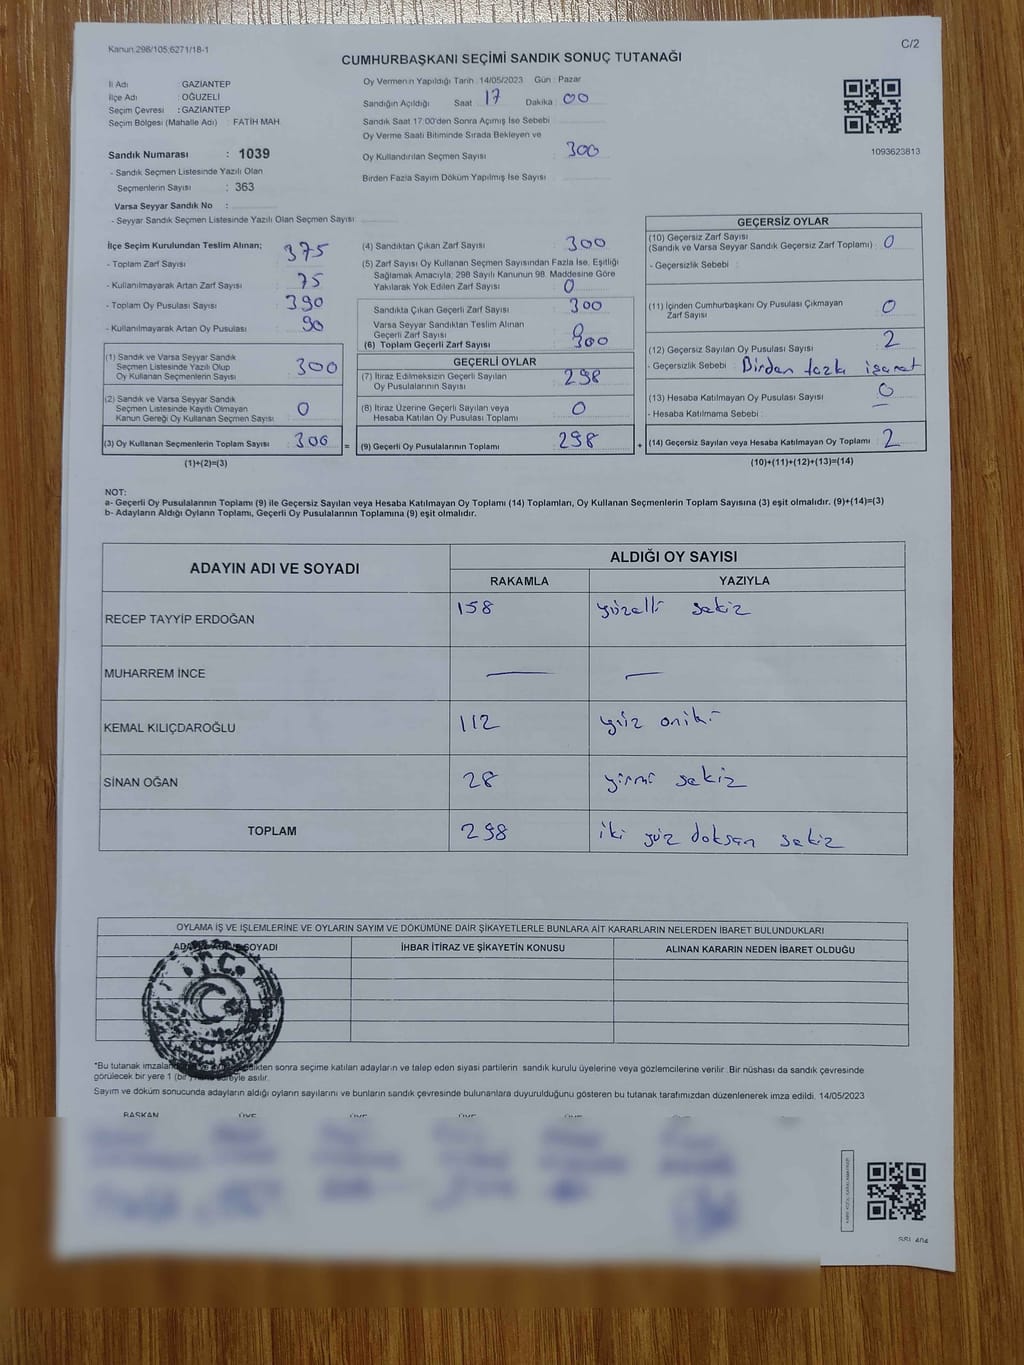 Kanun:298/105;6271/18-1
C/2
CUMHURBAŞKANI SEÇİMİ SANDIK SONUÇ TUTANAĞI
İl Adı : GAZİANTEP
İlçe Adı : OĞUZELİ
Seçim Çevresi : GAZİANTEP
Seçim Bölgesi (Mahalle Adı) : FATİH MAH.
Oy Vermenin Yapıldığı Tarih :14/05/2023 Gün : Pazar
Sandığın Açıldığı Saat 17 Dakika : 00
Sandık Saat 17:00'den Sonra Açımış İse Sebebi
Oy Verme Saati Bitiminde Sırada Bekleyen ve
Oy Kullandırılan Seçmen Sayısı : 300
Birden Fazla Sayım Döküm Yapılmış İse Sayısı
1093623813
Sandık Numarası : 1039
- Sandık Seçmen Listesinde Yazılı Olan
Seçmenlerin Sayısı : 363
Varsa Seyyar Sandık No :
- Seyyar Sandık Seçmen Listesinde Yazılı Olan Seçmen Sayısı
İlçe Seçim Kurulundan Teslim Alınan;
- Toplam Zarf Sayısı : 375
- Kullanılmayarak Artan Zarf Sayısı : 75
- Toplam Oy Pusulası Sayısı : 390
- Kullanılmayarak Artan Oy Pusulası : 90
(1) Sandık ve Varsa Seyyar Sandık
Seçmen Listesinde Yazılı Olup
Oy Kullanan Seçmenlerin Sayısı : 300
(2) Sandık ve Varsa Seyyar Sandık
Seçmen Listesinde Kayıtlı Olmayan
Kanun Gereği Oy Kullanan Seçmen Sayısı : 0
(3) Oy Kullanan Seçmenlerin Toplam Sayısı : 300
(1)+(2)=(3)
=
(4) Sandıktan Çıkan Zarf Sayısı : 300
(5) Zarf Sayısı Oy Kullanan Seçmen Sayısından Fazla İse, Eşitliği
Sağlamak Amacıyla, 298 Sayılı Kanunun 98. Maddesine Göre
Yakılarak Yok Edilen Zarf Sayısı : 0
Sandıkta Çıkan Geçerli Zarf Sayısı : 300
Varsa Seyyar Sandıktan Teslim Alınan
Geçerli Zarf Sayısı : 0
(6) Toplam Geçerli Zarf Sayısı : 300
GEÇERLİ OYLAR
(7) İtiraz Edilmeksizin Geçerli Sayılan
Oy Pusulalarının Sayısı : 298
(8) İtiraz Üzerine Geçerli Sayılan veya
Hesaba Katılan Oy Pusulası Toplamı : 0
(9) Geçerli Oy Pusulalarının Toplamı : 298
+
GEÇERSİZ OYLAR
(10) Geçersiz Zarf Sayısı
(Sandık ve Varsa Seyyar Sandık Geçersiz Zarf Toplamı) : 0
- Geçersizlik Sebebi :
(11) İçinden Cumhurbaşkanı Oy Pusulası Çıkmayan
Zarf Sayısı : 0
(12) Geçersiz Sayılan Oy Pusulası Sayısı : 2
- Geçersizlik Sebebi : Birden fazla işaret
(13) Hesaba Katılmayan Oy Pusulası Sayısı : 0
- Hesaba Katılmama Sebebi :
(14) Geçersiz Sayılan veya Hesaba Katılmayan Oy Toplamı : 2
(10)+(11)+(12)+(13)=(14)
NOT:
a- Geçerli Oy Pusulalarının Toplamı (9) ile Geçersiz Sayılan veya Hesaba Katılmayan Oy Toplamı (14) Toplamları, Oy Kullanan Seçmenlerin Toplam Sayısına (3) eşit olmalıdır. (9)+(14)=(3)
b- Adayların Aldığı Oyların Toplamı, Geçerli Oy Pusulalarının Toplamına (9) eşit olmalıdır.
ADAYIN ADI VE SOYADI
ALDIĞI OY SAYISI
RAKAMLA YAZIYLA
RECEP TAYYİP ERDOĞAN 158 yüzelli sekiz
MUHARREM İNCE — —
KEMAL KILIÇDAROĞLU 112 yüz oniki
SİNAN OĞAN 28 yirmi sekiz
TOPLAM 298 iki yüz doksan sekiz
OYLAMA İŞ VE İŞLEMLERİNE VE OYLARIN SAYIM VE DÖKÜMÜNE DAİR ŞİKAYETLERLE BUNLARA AİT KARARLARIN NELERDEN İBARET BULUNDUKLARI
SOYADI İHBAR İTİRAZ VE ŞİKAYETİN KONUSU ALINAN KARARIN NEDEN İBARET OLDUĞU
T.C.
*Bu tutanak sonra seçime katılan adayların ve talep eden siyasi partilerin sandık kurulu üyelerine veya gözlemcilerine verilir. Bir nüshası da sandık çevresinde
görülecek bir yere 1 (bir) asılır.
Sayım ve döküm sonucunda adayların aldığı oyların sayılarını ve bunların sandık çevresinde bulunanlara duyurulduğunu gösteren bu tutanak tarafımızdan düzenlenerek imza edildi. 14/05/2023
BAŞKAN ÜYE ÜYE ÜYE ÜYE